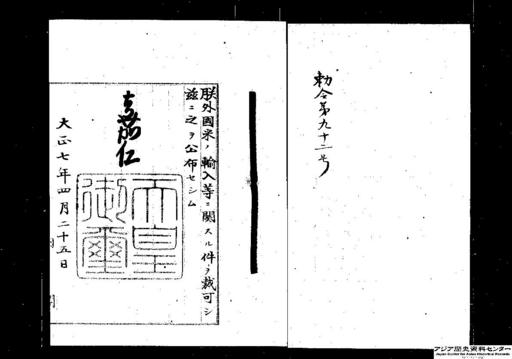 勅令第九十二号
朕外國米ノ輸入等ニ關スル件ヲ裁可シ
茲ニ之ヲ公布セシム
嘉仁
天皇御璽
大正七年四月二十五日
アジア歴史資料センター
Japan Center for Asian Historical Records